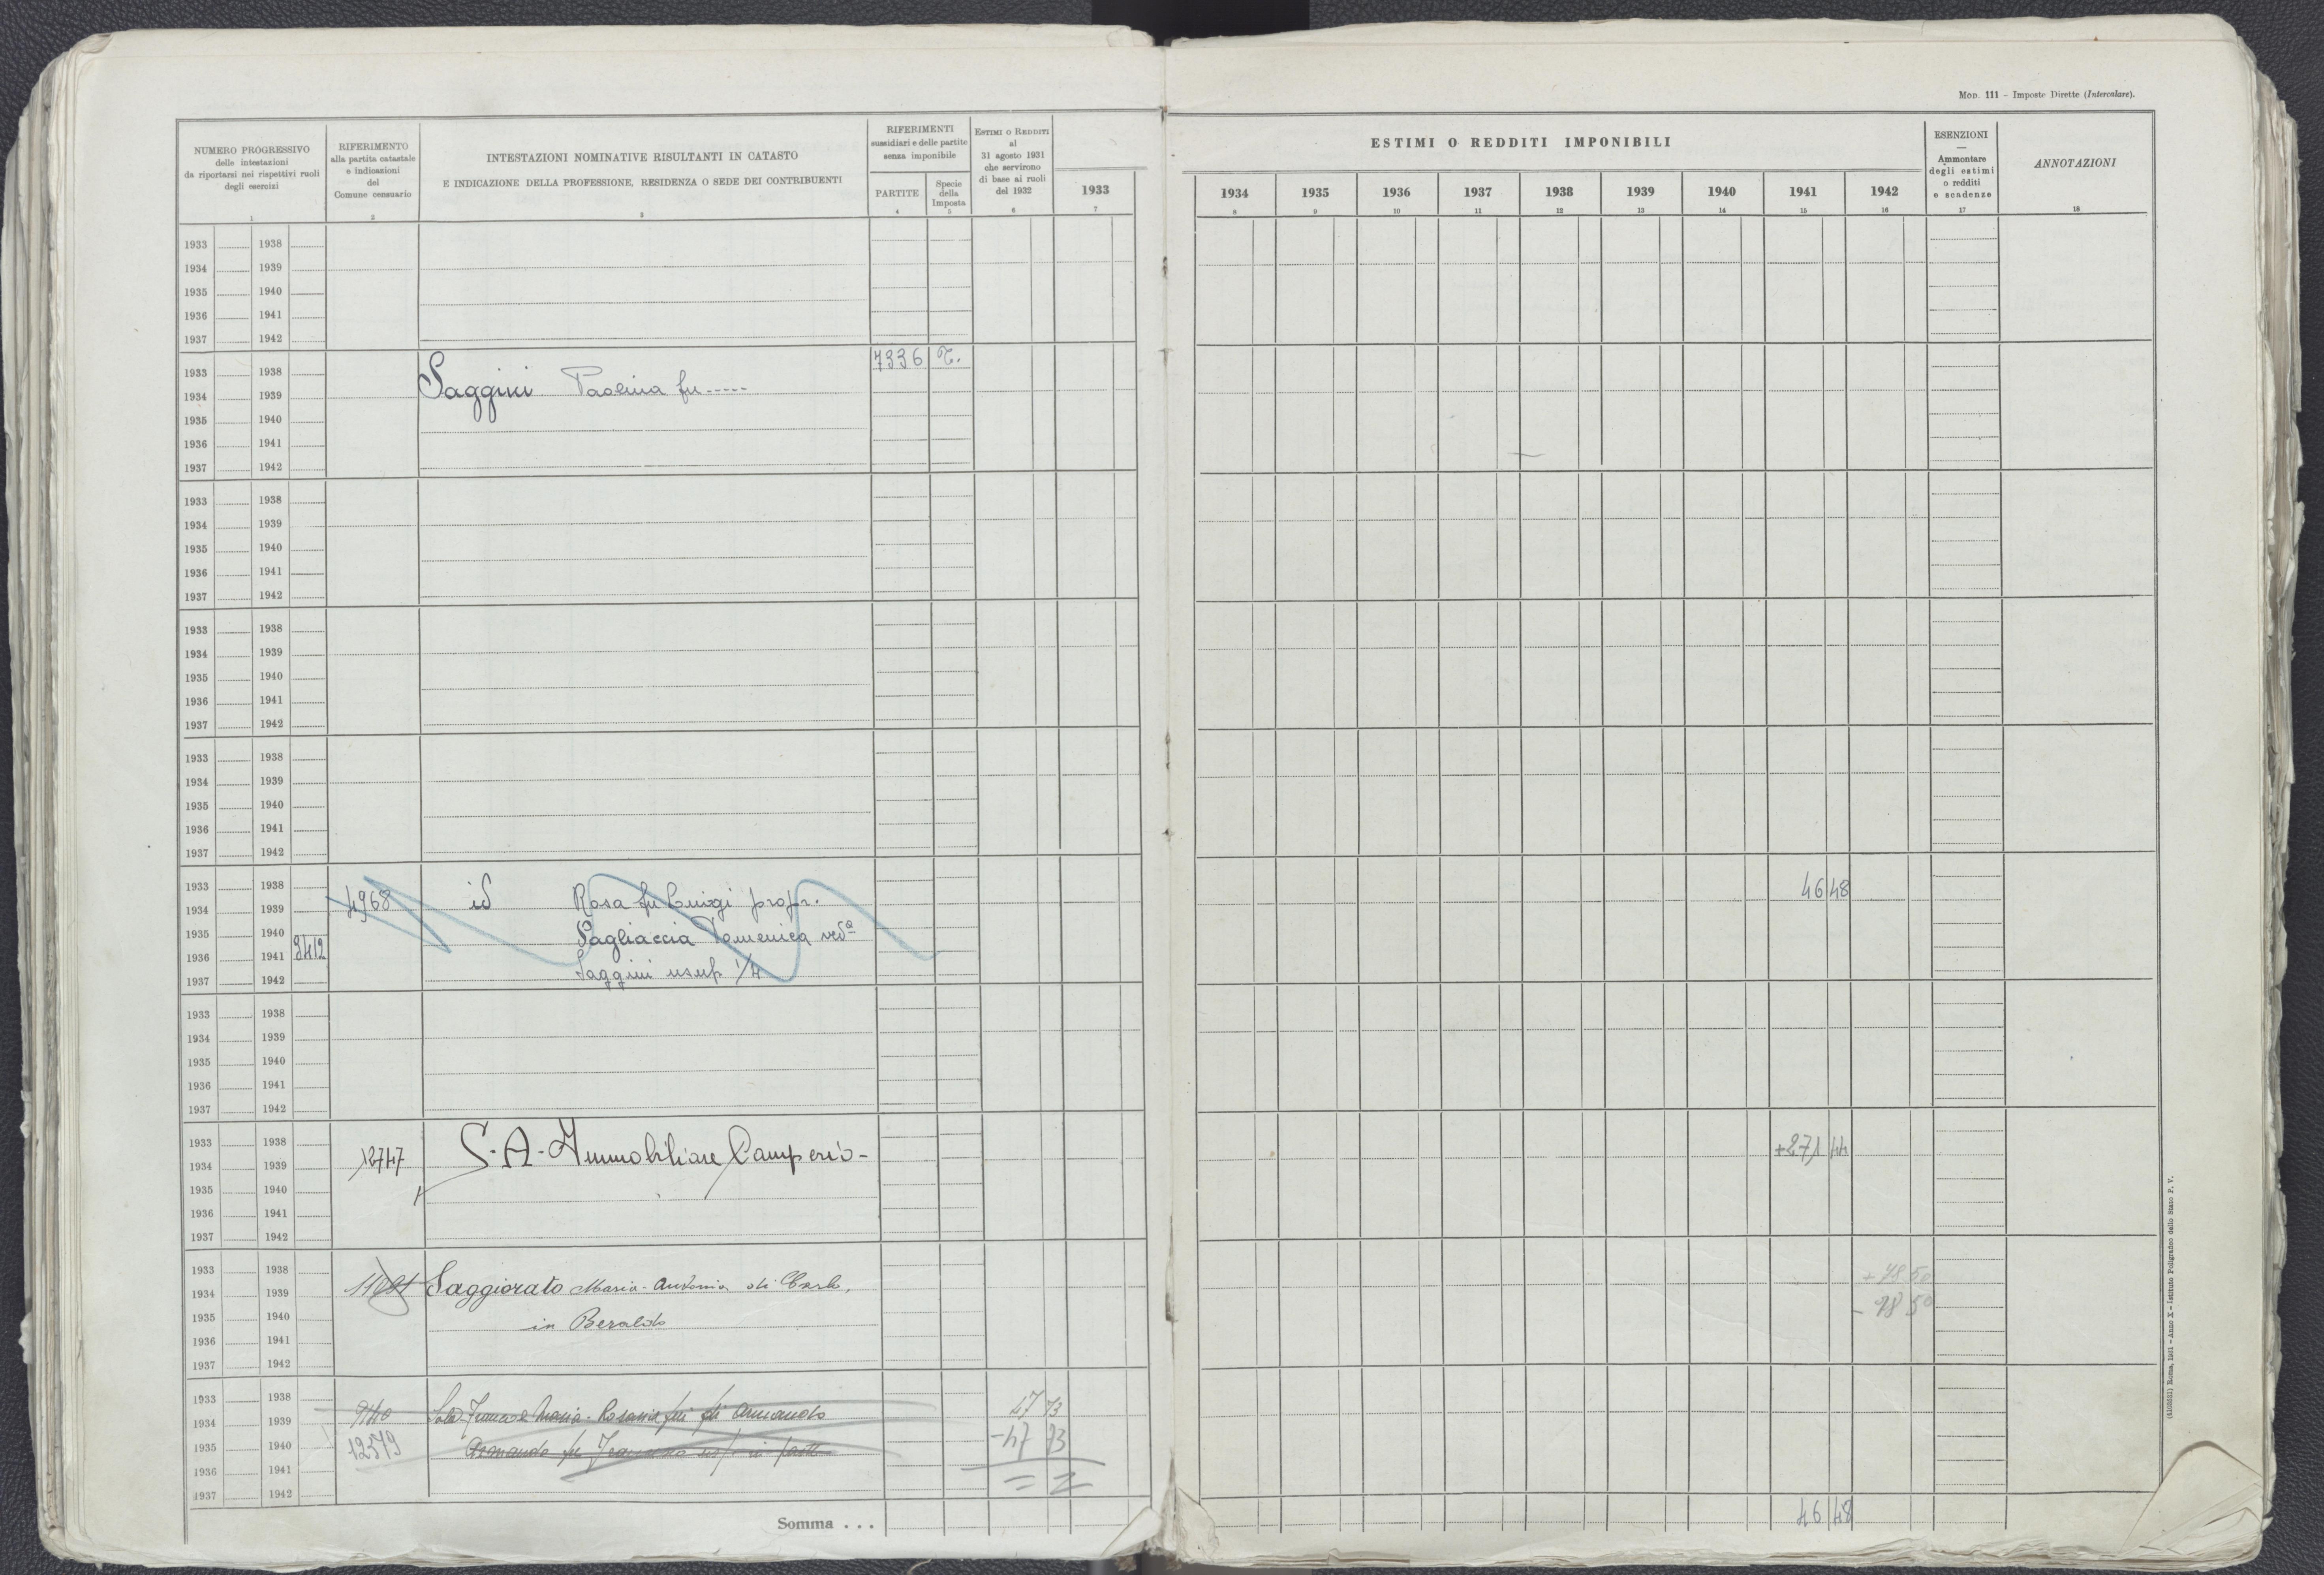 Mod. 111 – Imposte Dirette (Intercalare).
NUMERO PROGRESSIVO
delle intestazioni
da riportarsi nei rispettivi ruoli
degli esercizi
1
RIFERIMENTO
alla partita catastale
e indicazioni
del
Comune censuario
2
INTESTAZIONI NOMINATIVE RISULTANTI IN CATASTO
E INDICAZIONE DELLA PROFESSIONE, RESIDENZA O SEDE DEI CONTRIBUENTI
3
RIFERIMENTI
sussidiari e delle partite
senza imponibile
PARTITE
4
Specie
della
Imposta
5
ESTIMI O REDDITI
al
31 agosto 1931
che servirono
di base ai ruoli
del 1932
6
1933
7
ESTIMI O REDDITI IMPONIBILI
1934 1935 1936 1937 1938 1939 1940 1941 1942
8 9 10 11 12 13 14 15 16
ESENZIONI
—
Ammontare
degli estimi
o redditi
e scadenze
17
ANNOTAZIONI
18
1933 1938
1934 1939
1935 1940
1936 1941
1937 1942
7336 T.
1933 1938
Saggini Paolina fu -----
1934 1939
1935 1940
1936 1941
1937 1942
1933 1938
1934 1939
1935 1940
1936 1941
1937 1942
1933 1938
1934 1939
1935 1940
1936 1941
1937 1942
1933 1938
1934 1939
1935 1940
1936 1941
1937 1942
1933 1938 46 48
1934 1939 4968 id Rosa fu Luigi propr.
1935 1940 Pagliaccia Domenica ved.a
1936 1941 3412
1937 1942 Saggini usuf. 1/4
1933 1938
1934 1939
1935 1940
1936 1941
1937 1942
1933 1938 +271 44
1934 1939 12747 S. A. Immobiliare Camperio -
1935 1940
1936 1941
1937 1942
1933 1938 + 78 50
1934 1939 Saggiorato Maria-Antonia di Carlo,
1935 1940 in Beraldo - 78 50
1936 1941
1937 1942
1933 1938 47 73
1934 1939 9140 Maria-Rosanna Armando
1935 1940 12579 Armando fu Francesco usuf. in parte -47 73
1936 1941 = =
1937 1942
Somma . . . 46 48
Roma, 1931 – Anno X – Istituto Poligrafico dello Stato P. V.